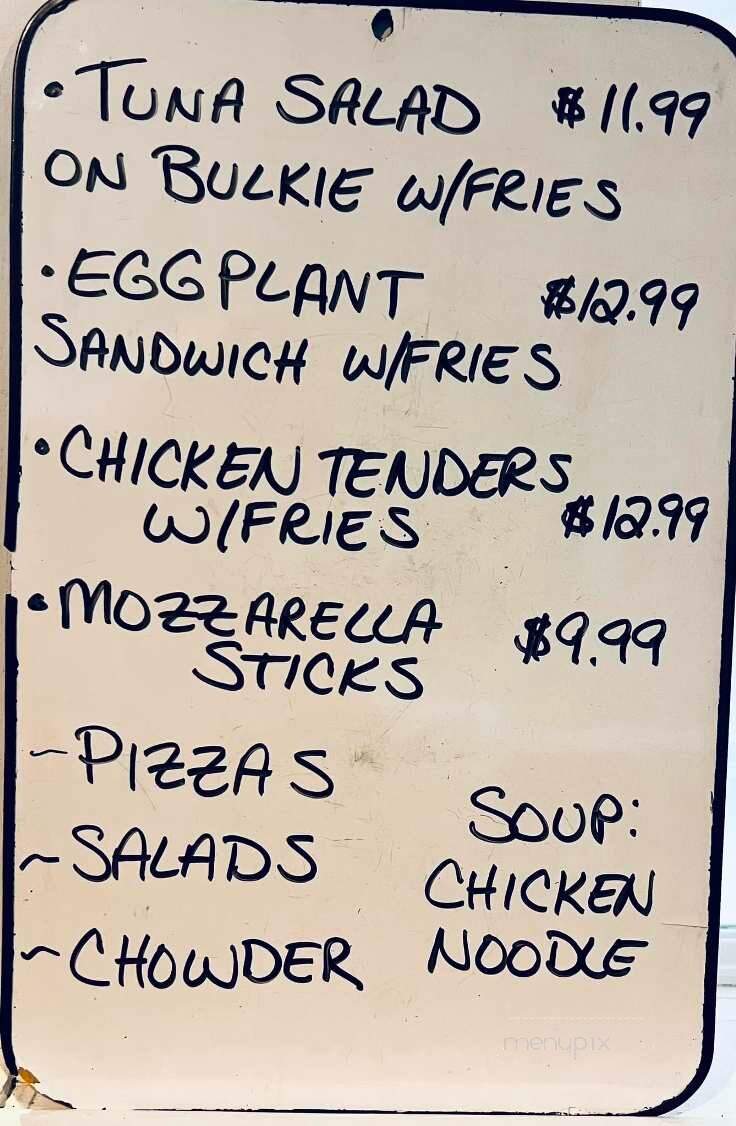 • TUNA SALAD $11.99
ON BULKIE W/FRIES
• EGGPLANT $12.99
SANDWICH W/FRIES
• CHICKEN TENDERS
W/FRIES $12.99
• MOZZARELLA $9.99
STICKS
~ PIZZAS
~ SALADS
~ CHOWDER
SOUP:
CHICKEN
NOODLE
menupix